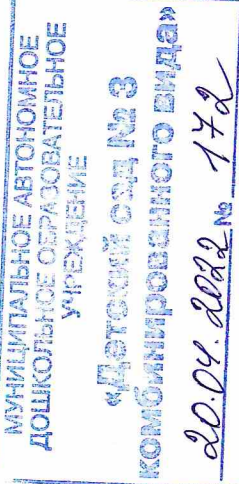 МУНИЦИПАЛЬНОЕ АВТОНОМНОЕ
ДОШКОЛЬНОЕ ОБРАЗОВАТЕЛЬНОЕ
УЧРЕЖДЕНИЕ
«Детский сад № 3
комбинированного вида»
20.04.2022 № 172